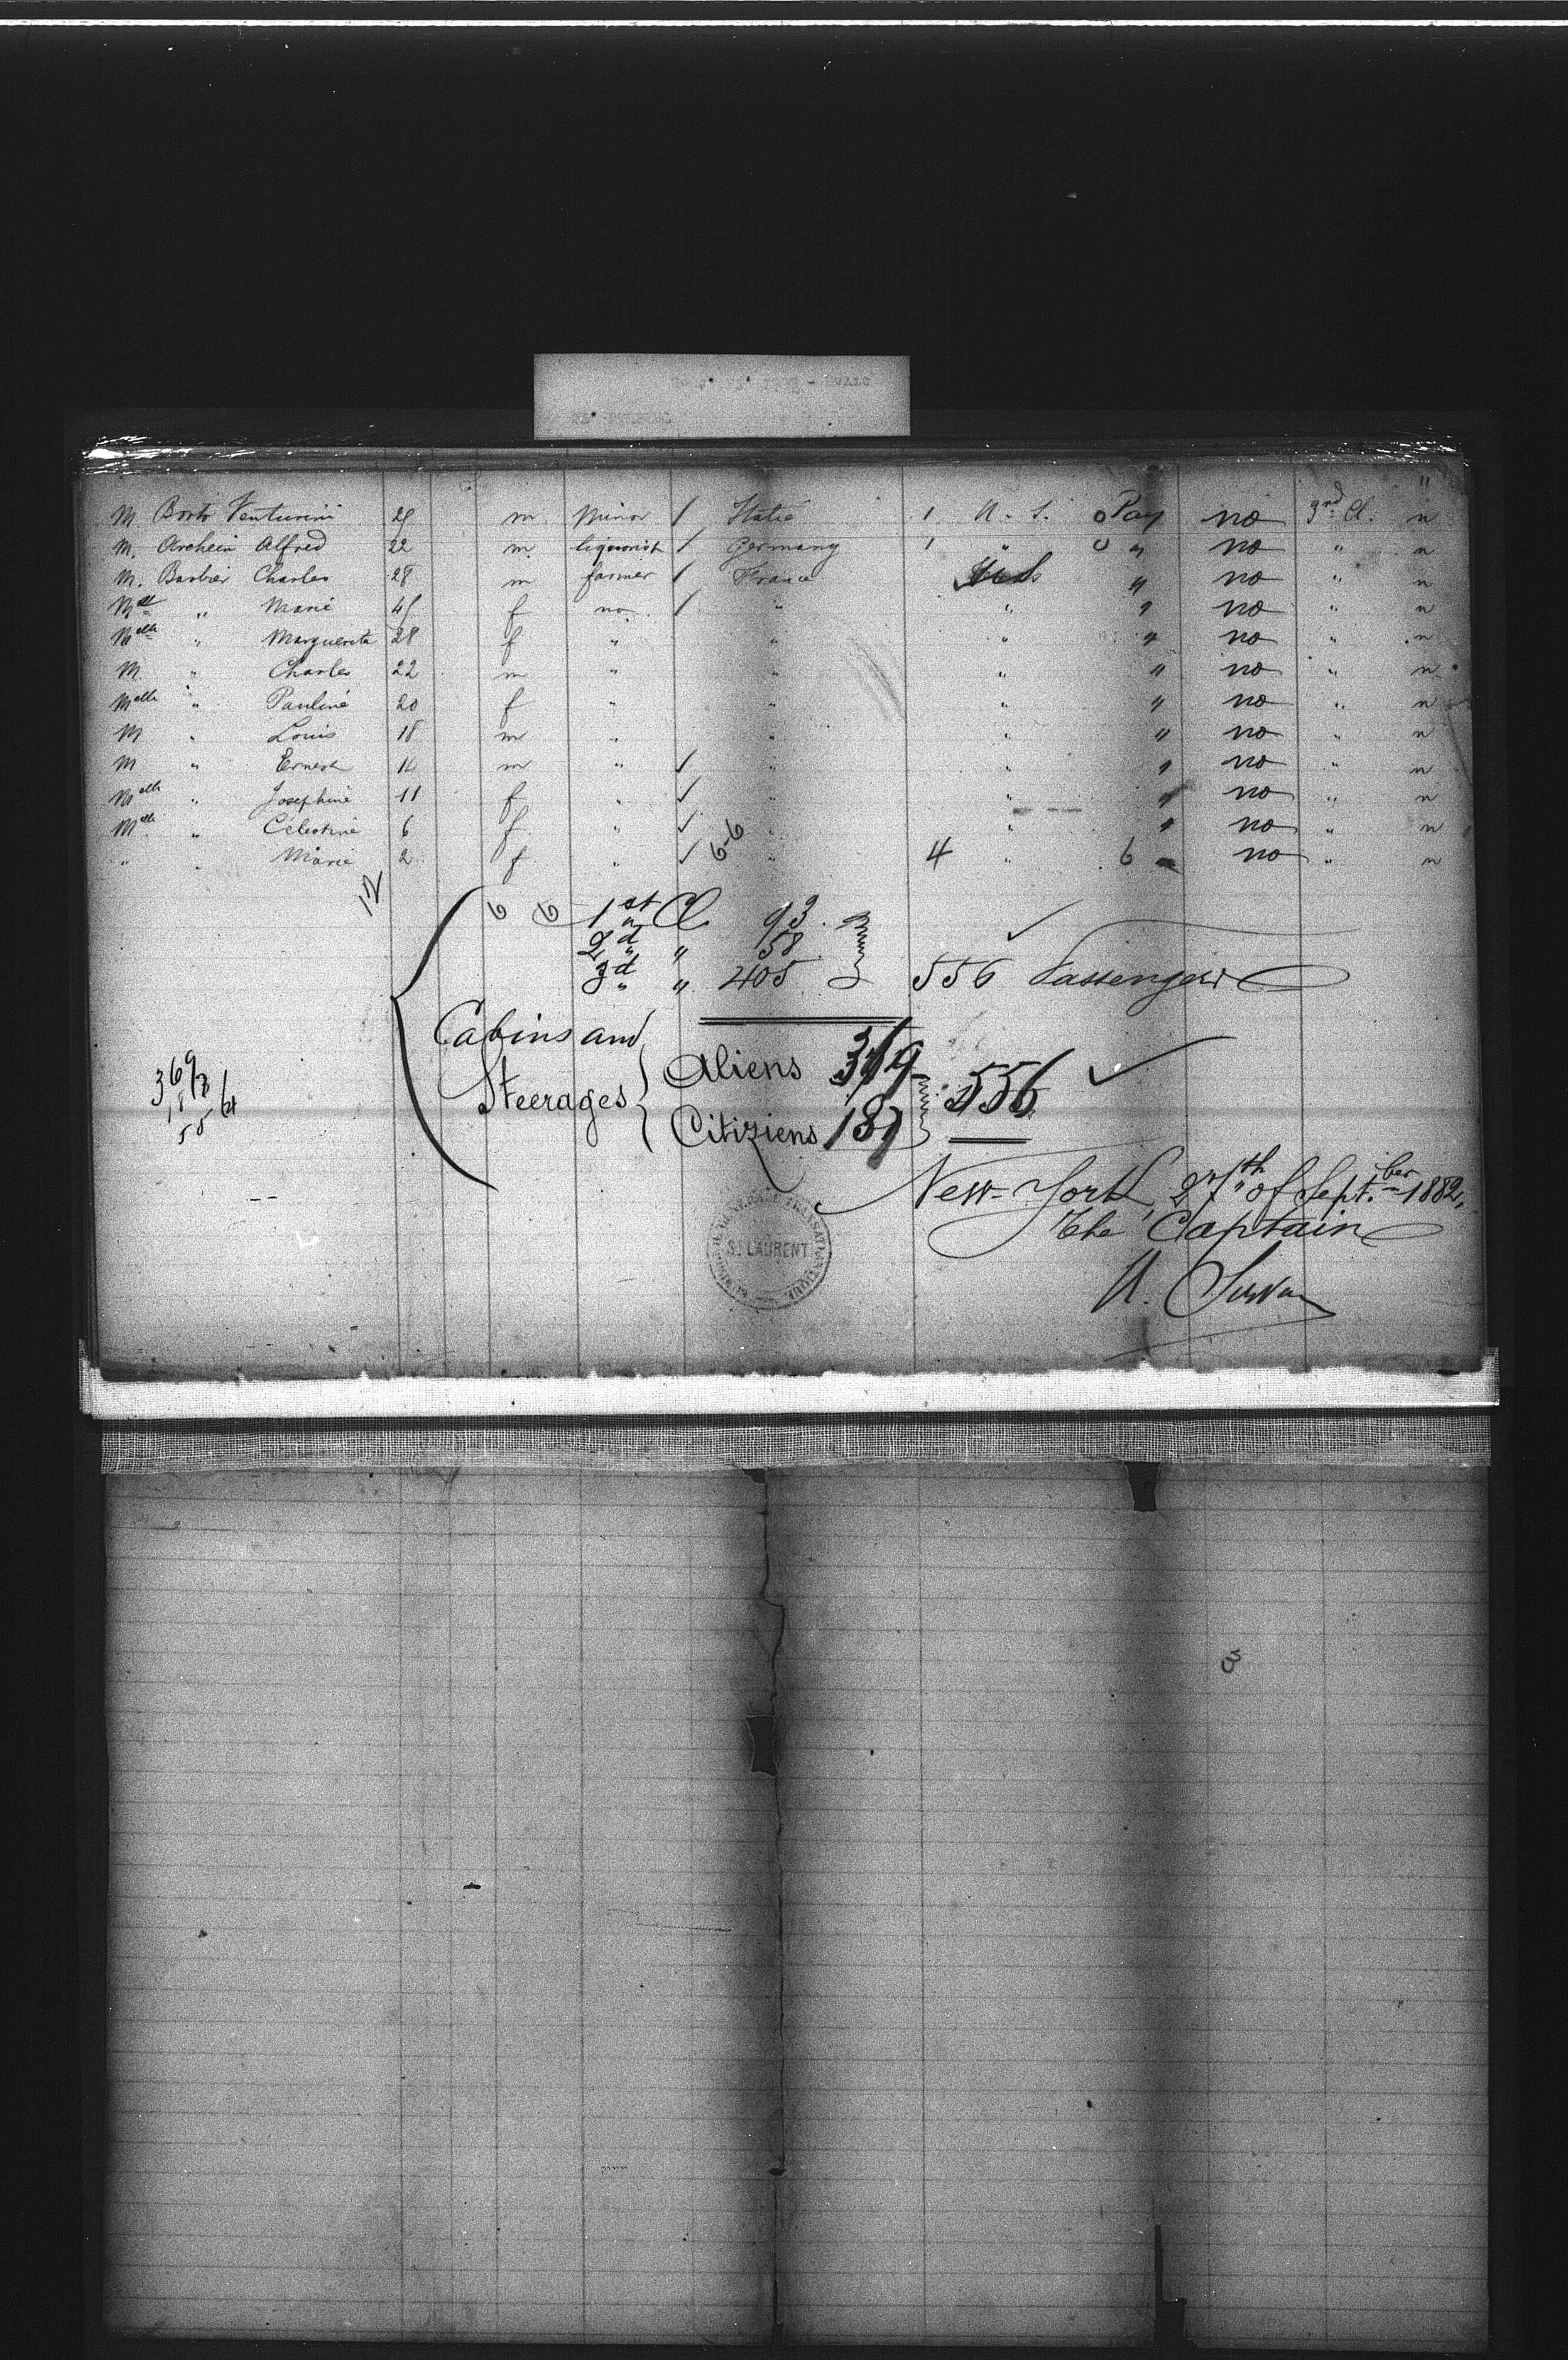 M Borto Venturini 29 m. Minor / Italie 1 U. S. 0 Pay no 3rd Cl. n
M. Archein Alfred 22 m. liquorist / Germany 1 " 0 " no " n
M. Barbier Charles 28 m farmer / France " no " n
" Marie 45 f no / " " " no " n
Melle " Marguerite 28 f " " " " no " n
M. " Charles 22 m " " " " no " n
Melle " Pauline 20 f " " " " no " n
M " Louis 18 m " " " " no " n
M " Ernest 14 m " / " " " no " n
Melle " Josephine 11 f " / " " " no " n
Melle " Celestine 6 f. " / " " " no " n
" " Marie 2 f " / 6-6 " 4 " 6 no " n
12
6 6 1st Cl 93
2d " 58
3d " 405 556 Passengers
Cabins and Steerages
Aliens 369
Citiziens 187
556
369
New-York, 27th of Sept.ber 1882.
The Captain
ST LAURENT